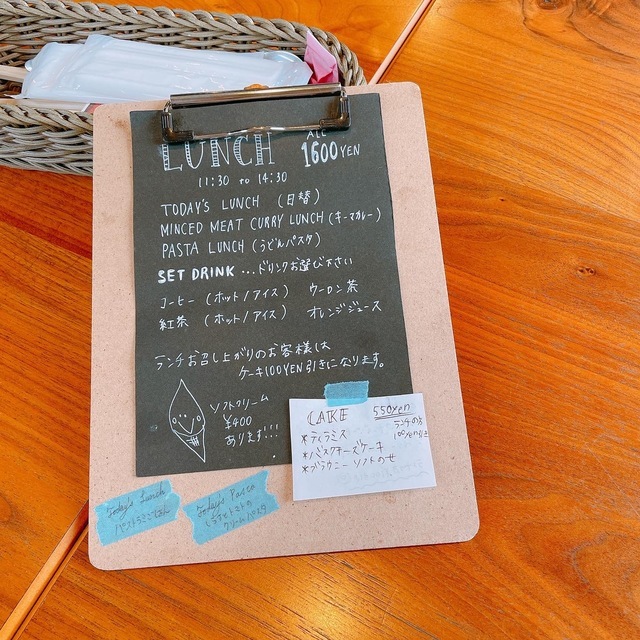 LUNCH
ALL
1600YEN
11:30 to 14:30
TODAY'S LUNCH (日替)
MINCED MEAT CURRY LUNCH (キーマカレー)
PASTA LUNCH (うどんパスタ)
SET DRINK …ドリンクお選び下さい
コーヒー (ホット/アイス) ウーロン茶
紅茶 (ホット/アイス) オレンジジュース
ランチお召し上がりのお客様は
ケーキ100YEN引きになります。
ソフトクリーム
¥400
あります!!!
CAKE 550yen
ランチの方
100YEN引き
*ティラミス
*バスクチーズケーキ
*ブラウニー ソフトのせ
Today's Lunch
Today's Pasta
クリームパスタ